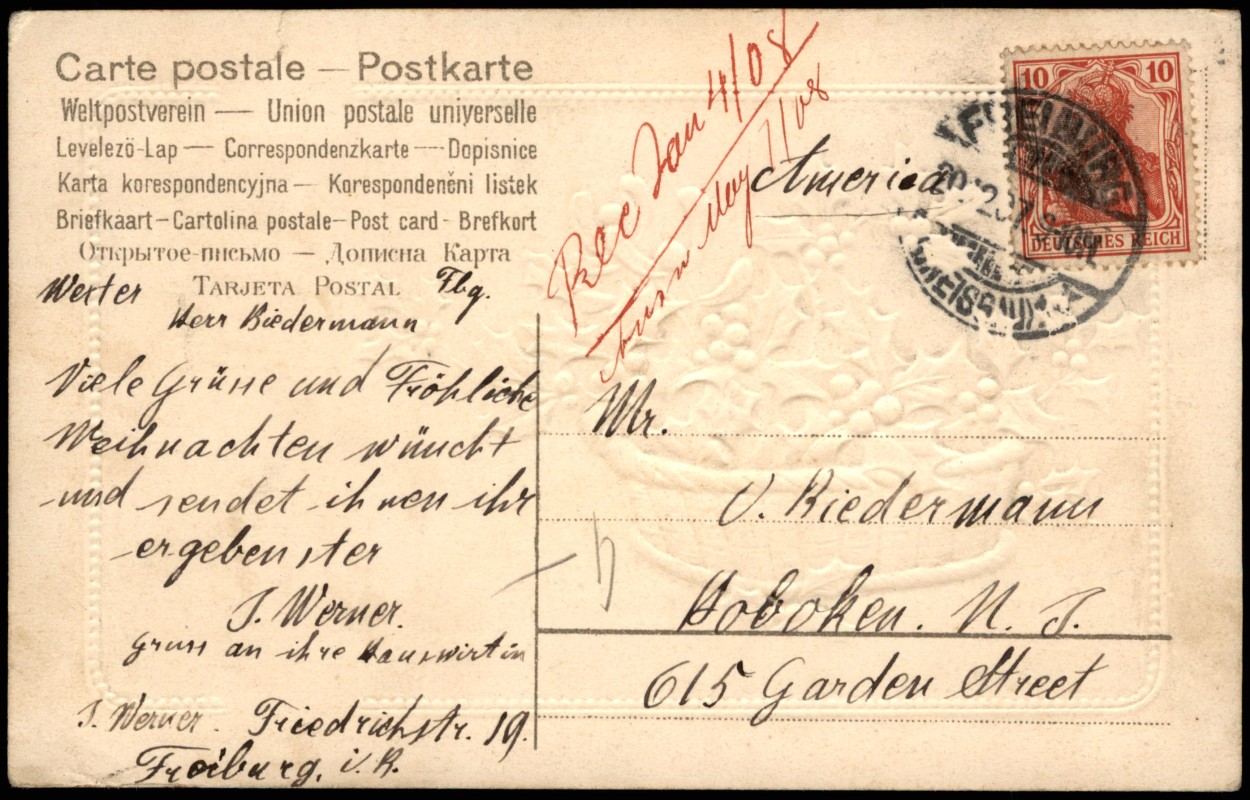 Carte postale — Postkarte
Weltpostverein — Union postale universelle
Levelező-Lap — Correspondenzkarte — Dopisnice
Karta korespondencyjna — Korespondenční listek
Briefkaart — Cartolina postale — Post card - Brefkort
Открытое-письмо — Дописна Карта
Tarjeta Postal
Rec Jan 4/08
May 7/08
America
10 10
DEUTSCHES REICH
20.12.07
(BREISGAU)
Werter Fbg.
Herr Biedermann
Viele Grüsse und Fröhliche
Weihnachten wüncht
und sendet ihnen ihr
ergebenster
J. Werner.
Gruss an ihre Hauswirtin
J. Werner. Friedrichstr. 19.
Freiburg. i. B.
Mr.
V. Biedermann
Hoboken. N. J.
615 Garden Street